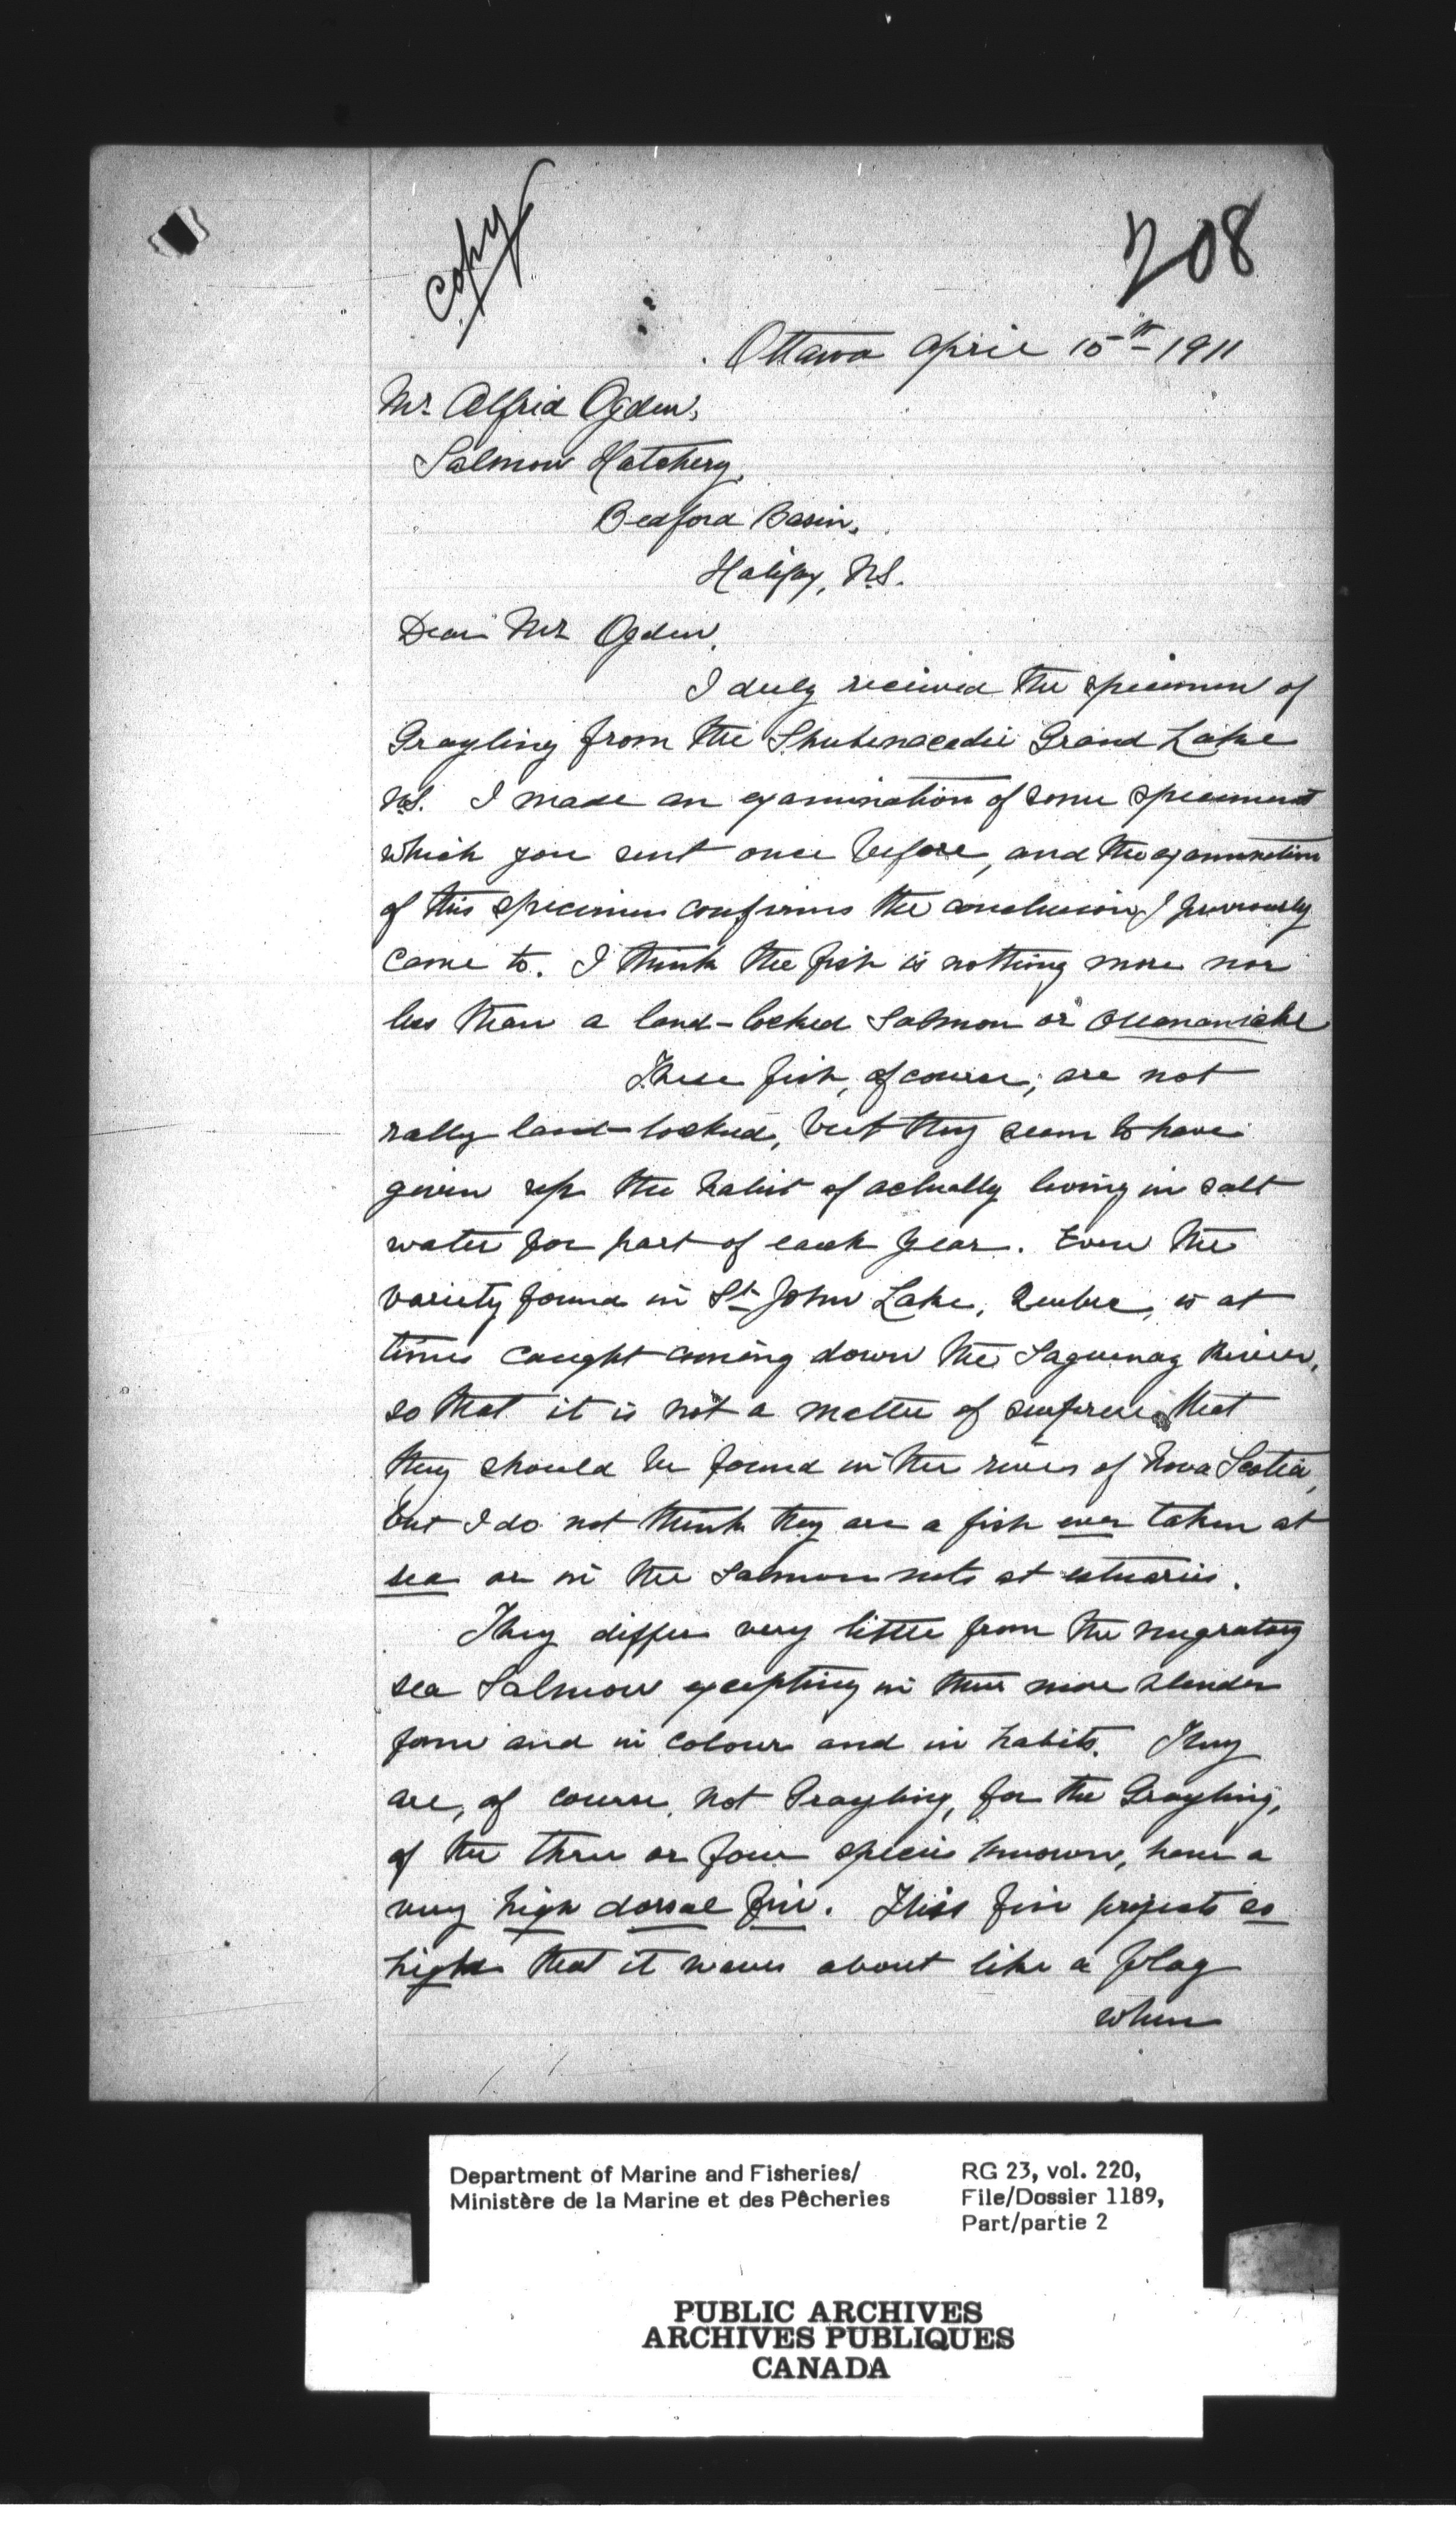 Copy
208
Ottawa April 15th 1911
Mr. Alfrid Ogden,
Salmon Hatchery,
Bedford Basin,
Halifax, N.S.
Dear Mr Ogden,
I duly received the specimen of
Grayling from the Shubenacadie Grand Lake
N.S. I made an examination of some specimens
which you sent once before, and the examination
of this specimen confirms the conclusion I previously
came to. I think the fish is nothing more nor
less than a land-locked salmon or Ouananiche
These fish, of course, are not
rally land-locked, but they seem to have
given up the habit of actually living in salt
water for part of each year. Even the
variety found in St John Lake, Quebec, is at
times caught coming down the Saguenay River,
so that it is not a matter of surprise that
they should be found in the rivers of Nova Scotia,
but I do not think they are a fish ever taken at
sea or in the salmon nets at estuaries.
They differ very little from the migratory
sea Salmon excepting in their more slender
form and in colour and in habits. They
are, of course, not Grayling, for the Grayling,
of the three or four species known, have a
very high dorsal fin. This fin projects so
high that it waves about like a flag
when
Department of Marine and Fisheries/
Ministère de la Marine et des Pêcheries
RG 23, vol. 220,
File/Dossier 1189,
Part/partie 2
PUBLIC ARCHIVES
ARCHIVES PUBLIQUES
CANADA